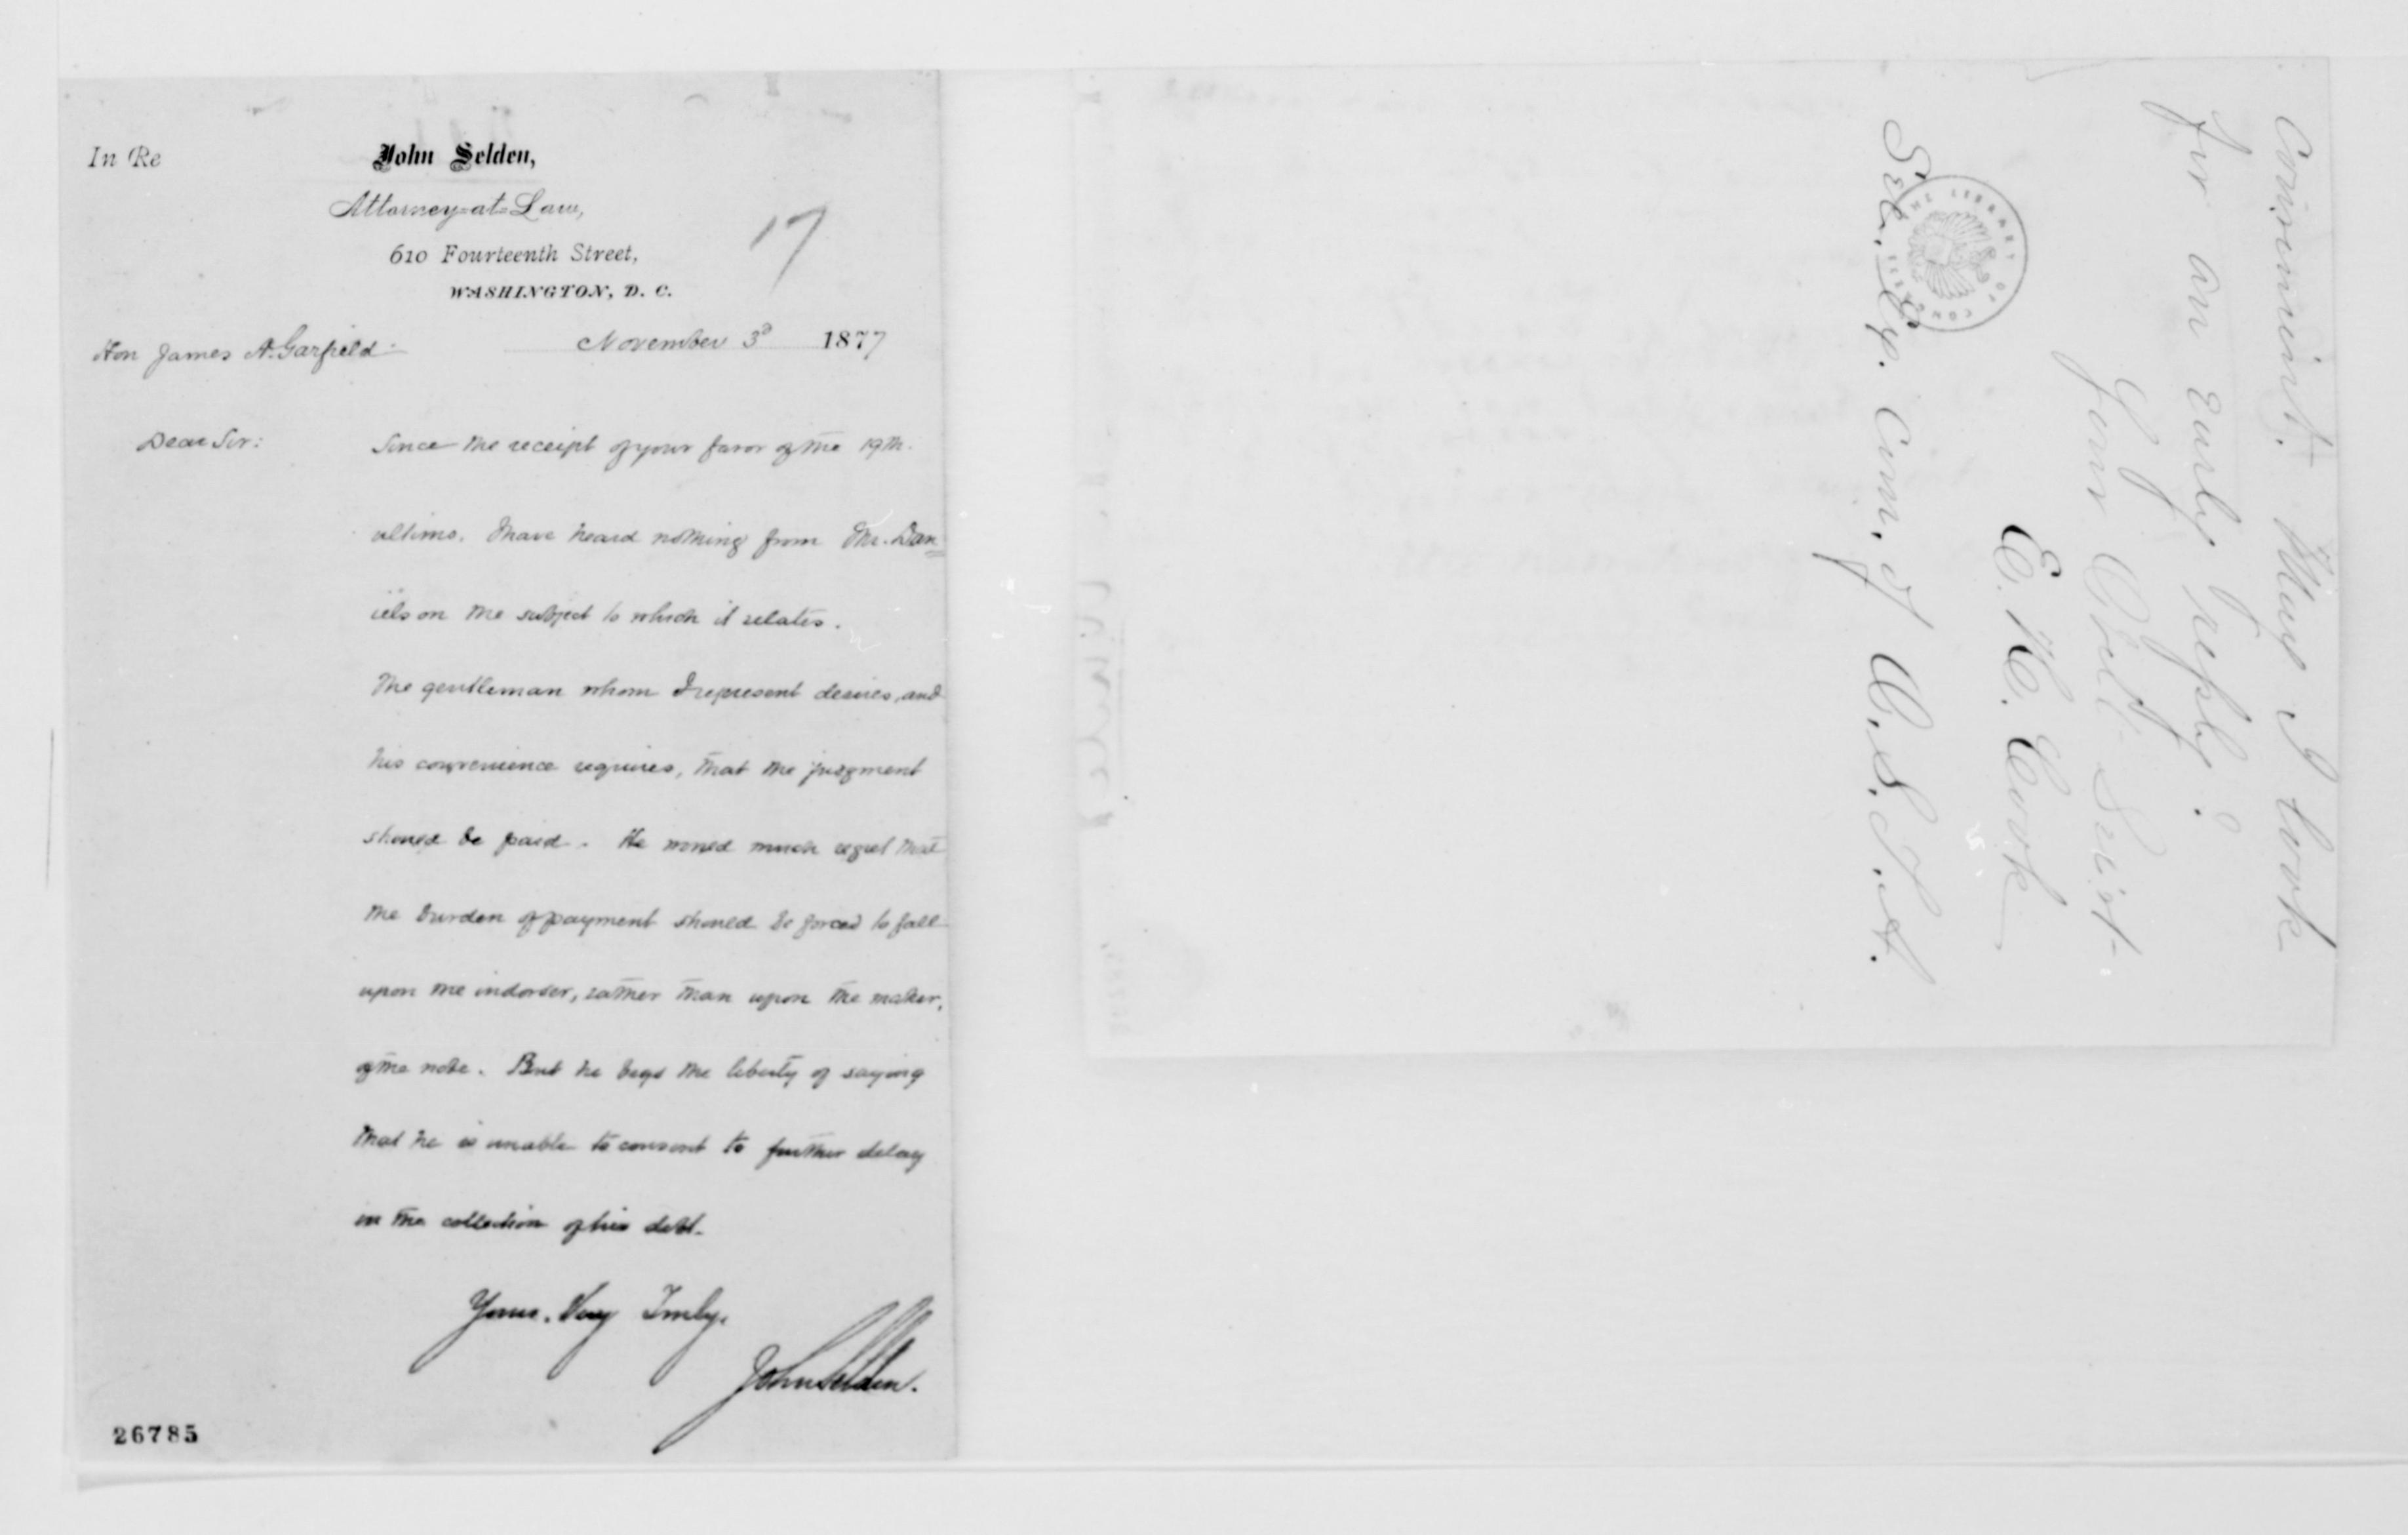 In Re
John Selden,
Attorney-at-Law,
610 Fourteenth Street,
WASHINGTON, D. C.
17
Hon James A. Garfield
November 3d 1877
Dear Sir:
Since the receipt of your favor of the 19th.
ultimo, I have heard nothing from Mr. Dan=
iels on the subject to which it relates.
The gentleman whom I represent desires, and
his convenience requires, that the judgment
should be paid. He would much regret that
the burden of payment should be forced to fall
upon the indorser, rather than upon the maker,
of the note. But he begs the liberty of saying
that he is unable to consent to further delay
in the collection of his debt.
Yours. Very Truly,
John Selden.
26785
May I look
for an early reply?
Your Ob't Serv't
Sec. Ex. Com. of U.S.
THE LIBRARY OF CONGRESS